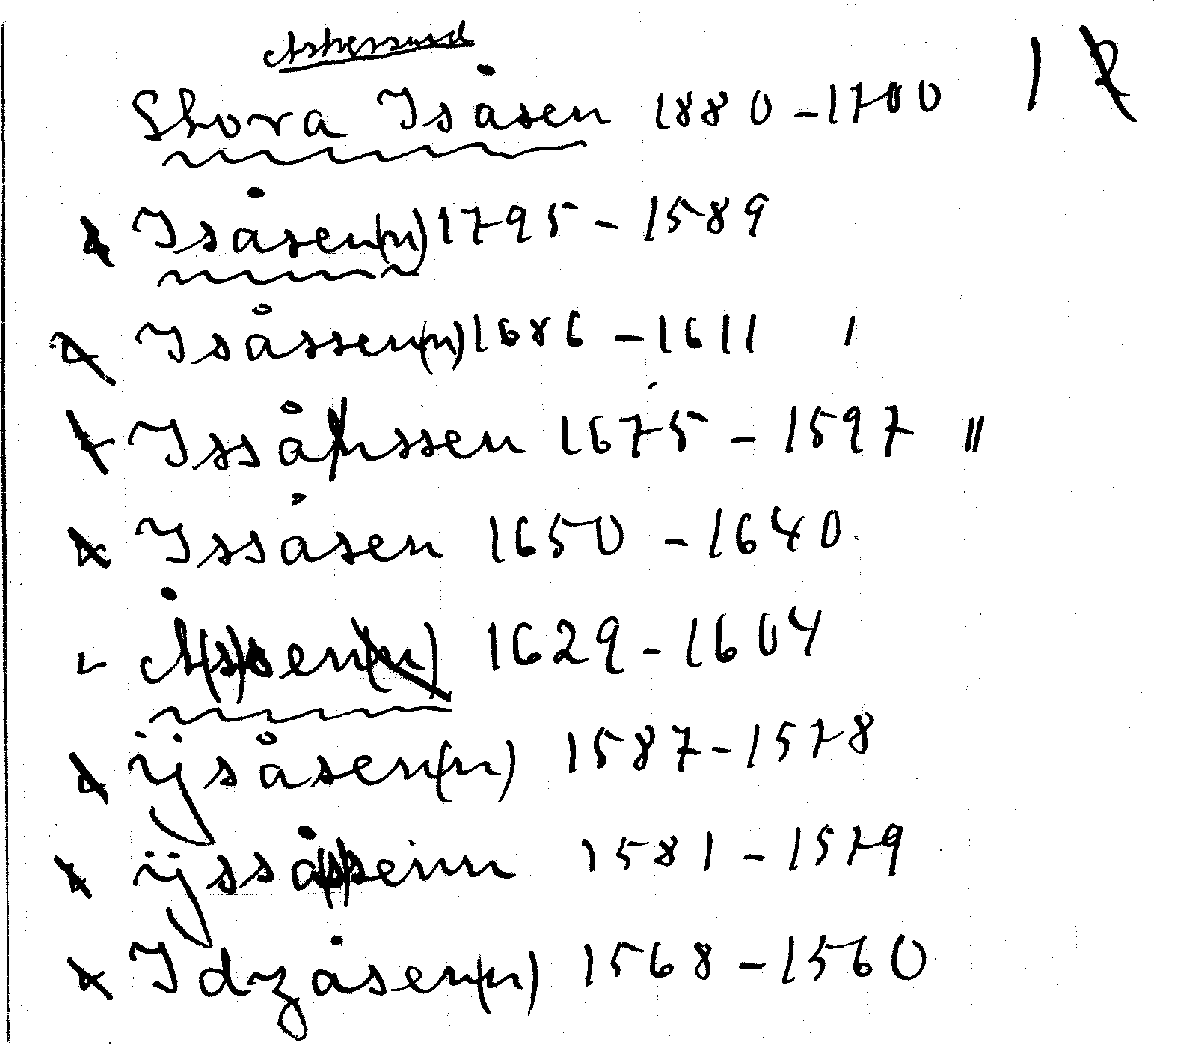 Askersund
Stora Isåsen 1880-1700 1
Isåsen(n) 1795-1589
Isåssen(n) 1686-1611 '
Issåhssen 1675-1597 "
Issåsen 1650-1640
Å(s)sen(n) 1629-1604
ijsåsen(n) 1587-1578
ijsså(s)seinn 1581-1579
Idzåsen(n) 1568-1560